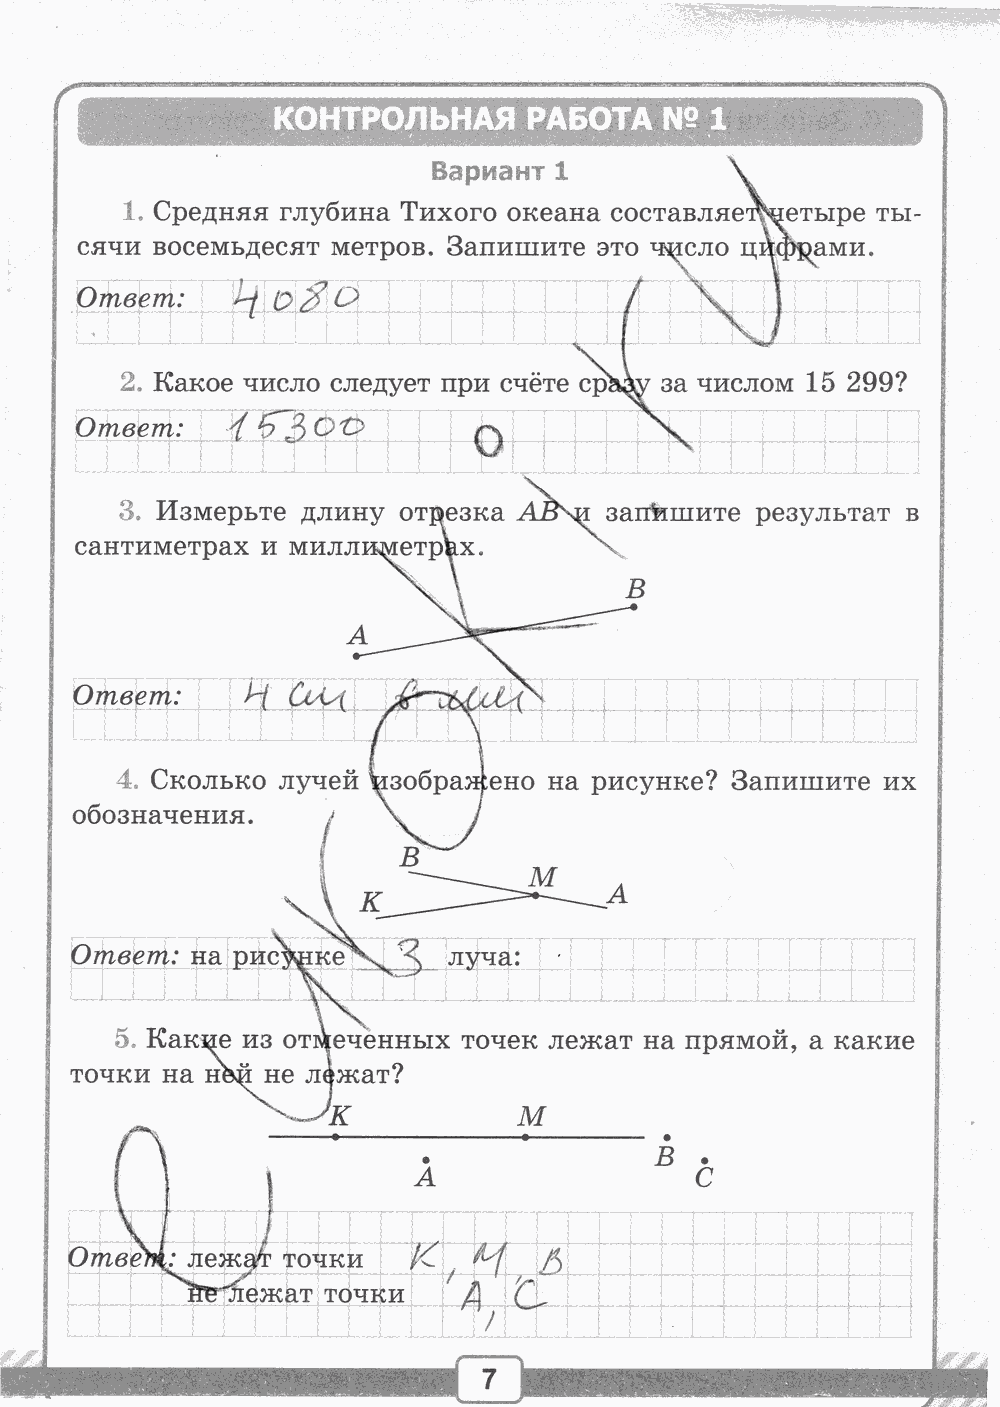 КОНТРОЛЬНАЯ РАБОТА № 1
Вариант 1
1. Средняя глубина Тихого океана составляет четыре ты-
сячи восемьдесят метров. Запишите это число цифрами.
Ответ: 4080
2. Какое число следует при счёте сразу за числом 15 299?
Ответ: 15300
3. Измерьте длину отрезка AB и запишите результат в
сантиметрах и миллиметрах.
B
A
Ответ: 4 см 6 мм
4. Сколько лучей изображено на рисунке? Запишите их
обозначения.
B
M
K A
Ответ: на рисунке 3 луча:
5. Какие из отмеченных точек лежат на прямой, а какие
точки на ней не лежат?
K M
B
A C
Ответ: лежат точки К, М, В
не лежат точки А, С
7